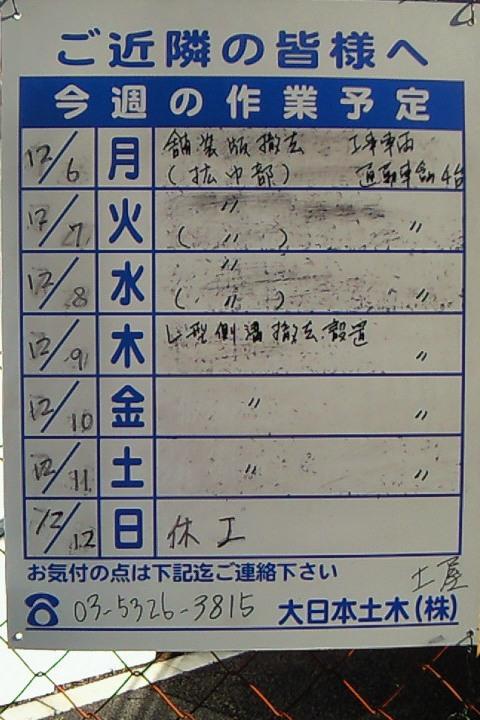 ご近隣の皆様へ
今週の作業予定
12/6 月 舗装版撤去 工事車両
(拡巾部) 4台
12/7 火 〃
( 〃 ) 〃
12/8 水 〃
( 〃 ) 〃
12/9 木 L型側溝撤去、設置
〃
12/10 金 〃 〃
12/11 土 〃 〃
12/12 日 休工
お気付の点は下記迄ご連絡下さい 土屋
03-5326-3815 大日本土木(株)